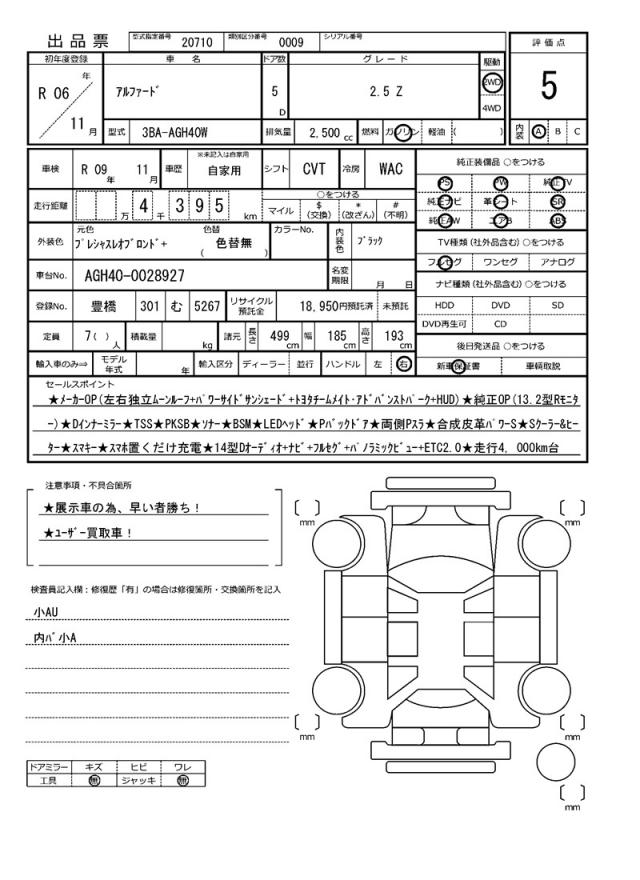 出品票 型式指定番号 20710 類別区分番号 0009 シリアル番号
初年度登録 車名 ドア数 グレード 駆動 評価点
R 06 年 11 月 アルファード 5 D 2.5 Z 2WD 4WD 5
型式 3BA-AGH40W 排気量 2,500 cc 燃料 ガソリン 軽油 ( ) 内装 A B C
車検 R 09 年 11 月 車歴 ※未記入は自家用 自家用 シフト CVT 冷房 WAC 純正装備品 ○をつける
PS PW 純正TV
走行距離 万 4 千 395 km ○をつける 純正ナビ 革シート SR
マイル $ (交換) * (改ざん) # (不明) 純正AW エアB ABS
外装色 元色 プレシャスレオブロンド+ 色替 ( 色替無 ) カラーNo. 内装色 ブラック TV種類 (社外品含む) ○をつける
フルセグ ワンセグ アナログ
車台No. AGH40-0028927 名変期限 月 日 ナビ種類 (社外品含む) ○をつける
登録No. 豊橋 301 む 5267 リサイクル預託金 18,950円預託済 未預託 HDD DVD SD
DVD再生可 CD
定員 7( ) 人 積載量 kg 諸元 長さ 499 cm 幅 185 cm 高さ 193 cm 後日発送品 ○をつける
輸入車のみ⇒ モデル年式 年 輸入区分 ディーラー 並行 ハンドル 左 右 新車保証書 車輌取説
セールスポイント
★メーカーOP(左右独立ムーンルーフ+パワーサイドサンシェード+トヨタチームメイト・アドバンストパーク+HUD)★純正OP(13.2型Rモニタ
ー)★Dインナーミラー★TSS★PKSB★ソナー★BSM★LEDヘッド★Pバックドア★両側Pスラ★合成皮革パワーS★Sクーラー&ヒー
ター★スマキー★スマホ置くだけ充電★14型Dオーディオ+ナビ+フルセグ+パノラミックビュー+ETC2.0★走行4,000km台
注意事項・不具合箇所
★展示車の為、早い者勝ち！
★ユーザー買取車！
検査員記入欄：修復歴「有」の場合は修復箇所・交換箇所を記入
小AU
内バ小A
ドアミラー キズ ヒビ ワレ
工具 無 ジャッキ 無
[ ] mm
[ ] mm
[ ] mm
[ ] mm
[ ] mm